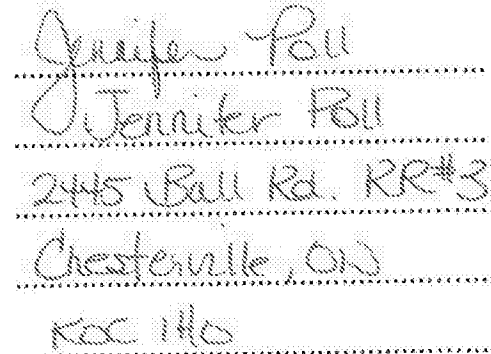 Jennifer Poll
Jennifer Poll
2445 Ball Rd. RR#3
Chesterville, ON
K0C 1H0